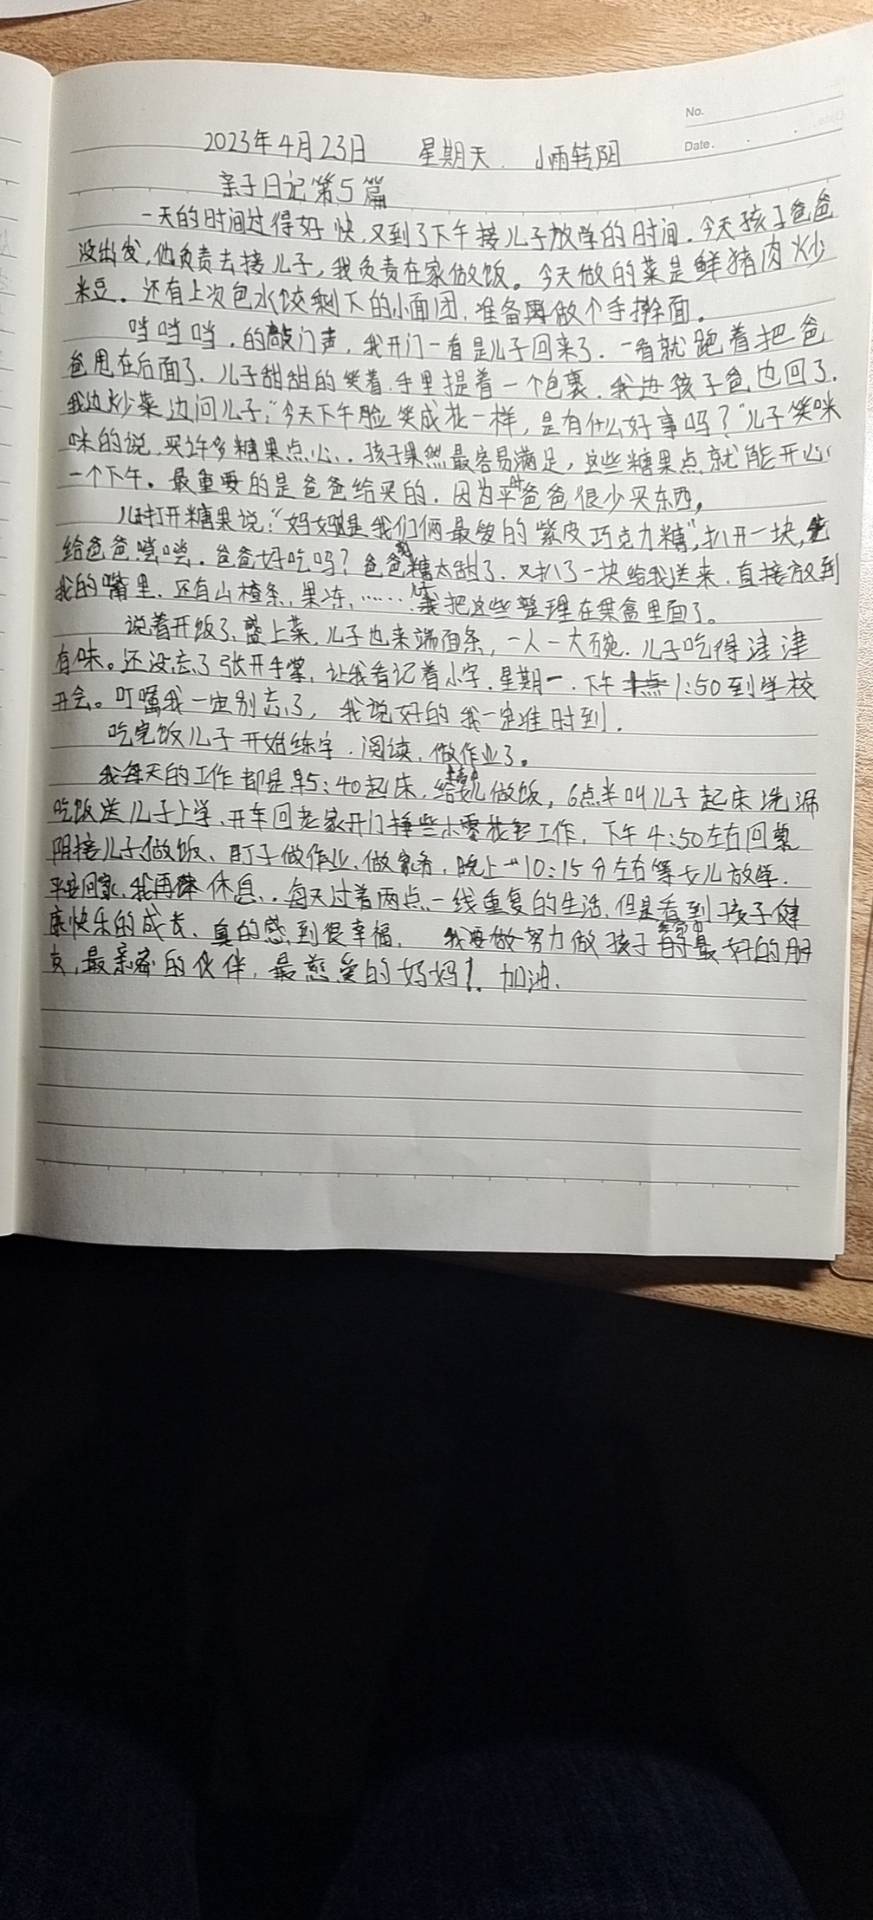 No.
Date.
2023年4月23日 星期天. 小雨转阴
亲子日记第5篇
一天的时间过得好快,又到了下午接儿子放学的时间.今天孩子爸爸
没出发,他负责去接儿子,我负责在家做饭。今天做的菜是鲜猪肉炒
米豆.还有上次包水饺剩下的小面团,准备再做个手擀面。
当当当,的敲门声,我开门一看是儿子回来了.一看就跑着把爸
爸甩在后面了.儿子甜甜的笑着.手里提着一个包裹.我边孩子爸也回了.
我边炒菜边问儿子;"今天下午脸笑成花一样,是有什么好事吗?"儿子笑咪
咪的说,买许多糖果点心..孩子果然最容易满足,这些糖果点就能开心
一个下午。最重要的是爸爸给买的.因为平时爸爸很少买东西,
儿子打开糖果说:"妈妈是我们俩最爱的紫皮巧克力糖",扒开一块,先
给爸爸尝尝.爸爸好吃吗?爸爸糖太甜了.又扒了一块给我送来.直接放到
我的嘴里.还有山楂条,果冻,……我把这些整理在果盒里面了。
说着开饭了,盛上菜,儿子也来端面条,一人一大碗.儿子吃得津津
有味。还没忘了张开手掌,让我看记着小字.星期一.下午1:50到学校
开会。叮嘱我一定别忘了,我说好的我一定准时到.
吃完饭儿子开始练字.阅读.做作业了。
我每天的工作都是早5:40起床,给儿做饭,6点半叫儿子起床洗漱
吃饭送儿子上学.开车回老家开门 些小零 工作,下午4:50左右回
阴接儿子做饭、盯子做作业.做家务,晚上10:15分左右等女儿放学.
平安回家.我再休息..每天过着两点一线重复的生活,但是看到孩子健
康快乐的成长.真的感到很幸福. 我要做努力做孩子最好的朋
友,最亲密的伙伴,最慈爱的妈妈!.加油.